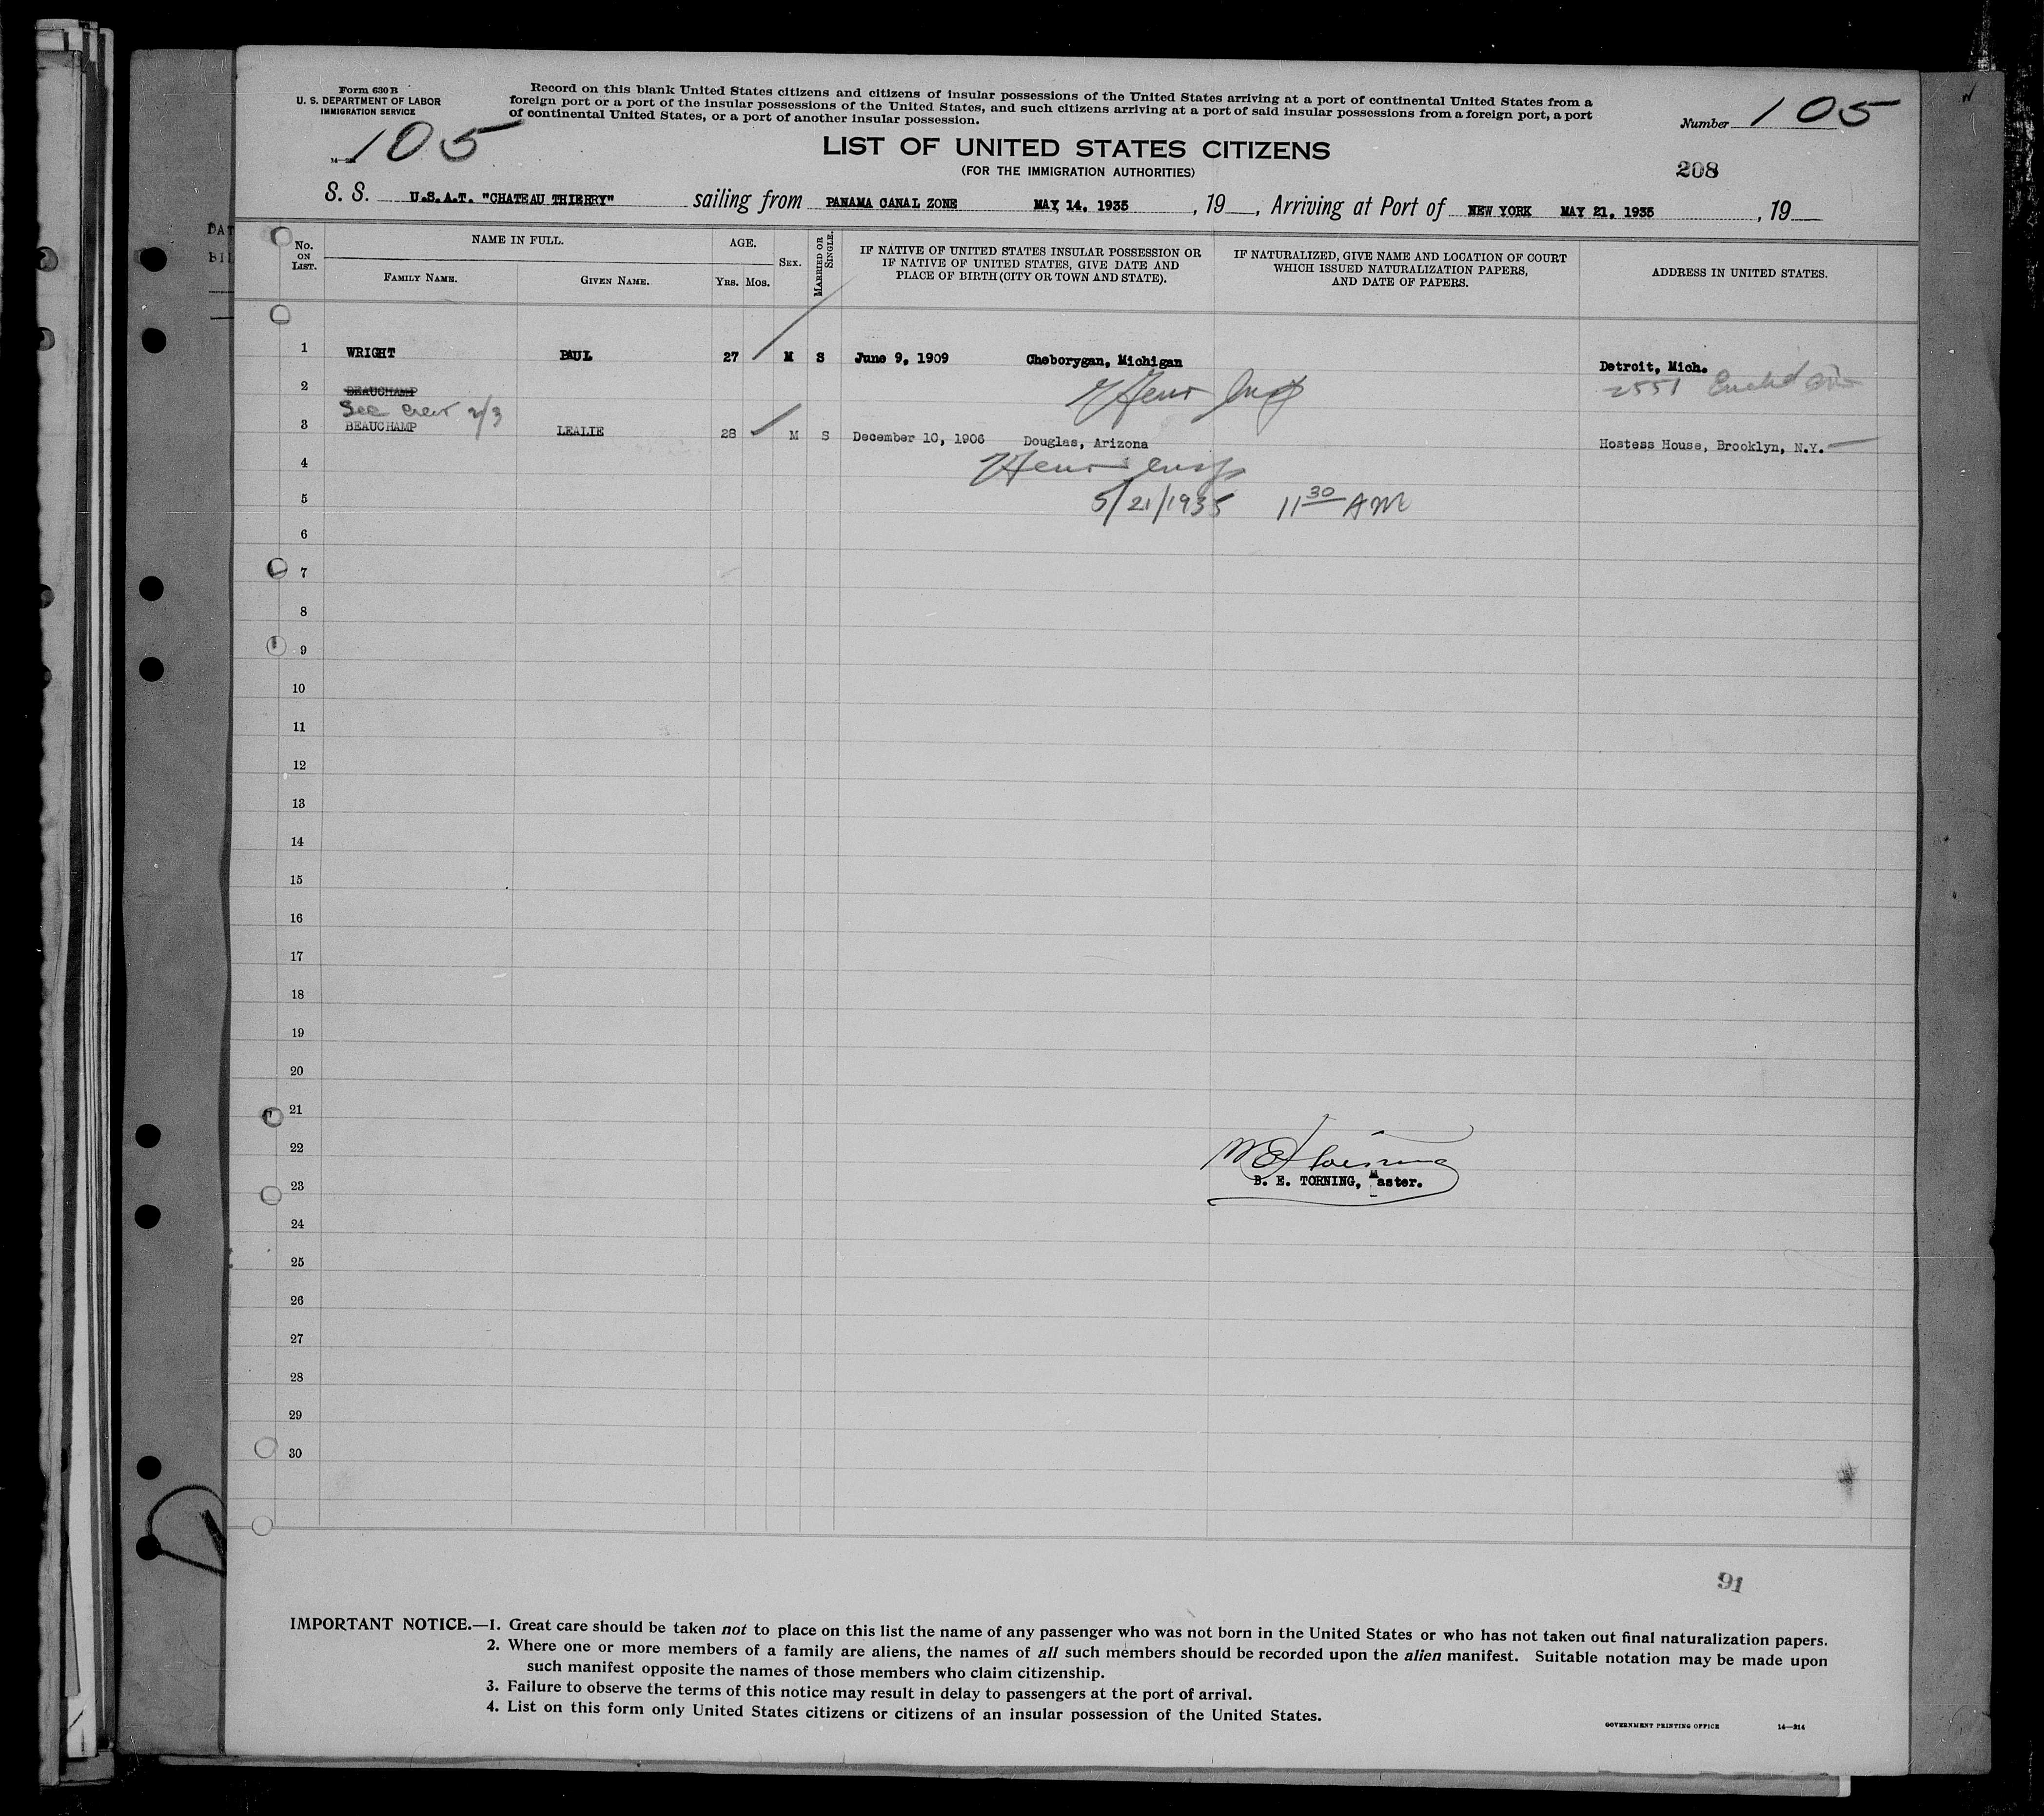 Form 630 B
U. S. DEPARTMENT OF LABOR
IMMIGRATION SERVICE
105
Record on this blank United States citizens and citizens of insular possessions of the United States arriving at a port of continental United States from a
foreign port or a port of the insular possessions of the United States, and such citizens arriving at a port of said insular possessions from a foreign port, a port
of continental United States, or a port of another insular possession.
Number 105
LIST OF UNITED STATES CITIZENS
(FOR THE IMMIGRATION AUTHORITIES)
208
S. S. U.S.A.T. "CHATEAU THIERRY" sailing from PANAMA CANAL ZONE MAY 14, 1935, 19__, Arriving at Port of NEW YORK MAY 21, 1935, 19__
No. ON LIST. NAME IN FULL. AGE. SEX. MARRIED OR SINGLE. IF NATIVE OF UNITED STATES INSULAR POSSESSION OR IF NATIVE OF UNITED STATES, GIVE DATE AND PLACE OF BIRTH (CITY OR TOWN AND STATE). IF NATURALIZED, GIVE NAME AND LOCATION OF COURT WHICH ISSUED NATURALIZATION PAPERS, AND DATE OF PAPERS. ADDRESS IN UNITED STATES.
FAMILY NAME. GIVEN NAME. YRS. MOS.
1 WRIGHT PAUL 27 M S June 9, 1909 Cheborygan, Michigan Detroit, Mich.
2551
2 BEAUCHAMP
See crew 2/3
3 BEAUCHAMP LEALIE 28 M S December 10, 1906 Douglas, Arizona Hostess House, Brooklyn, N.Y.
4
5 5/21/1935 11 30 AM
6
7
8
9
10
11
12
13
14
15
16
17
18
19
20
21
22
23 B. E. TORNING, Master.
24
25
26
27
28
29
30
91
IMPORTANT NOTICE.—1. Great care should be taken not to place on this list the name of any passenger who was not born in the United States or who has not taken out final naturalization papers.
2. Where one or more members of a family are aliens, the names of all such members should be recorded upon the alien manifest. Suitable notation may be made upon
such manifest opposite the names of those members who claim citizenship.
3. Failure to observe the terms of this notice may result in delay to passengers at the port of arrival.
4. List on this form only United States citizens or citizens of an insular possession of the United States.
GOVERNMENT PRINTING OFFICE 14—214